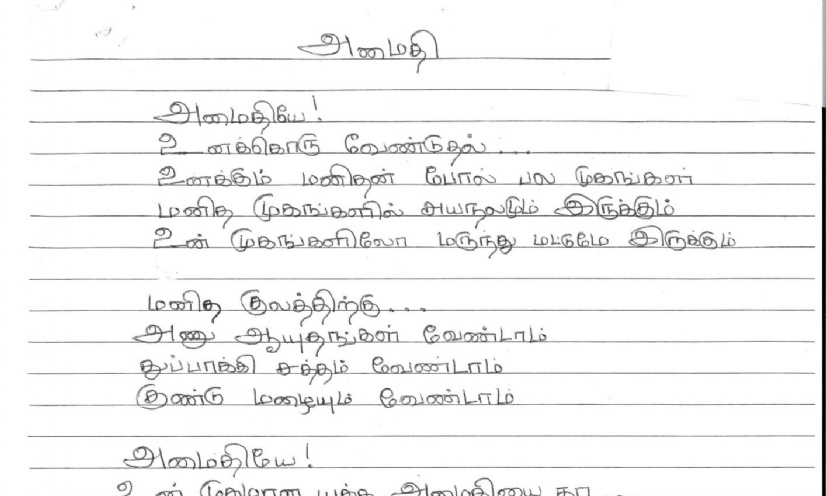 அமைதி
அமைதியே!
உனக்கொரு வேண்டுதல்...
உனக்கும் மனிதன் போல் பல முகங்கள்
மனித முகங்களில் சுயநலமும் இருக்கும்
உன் முகங்களிலோ மருந்து மட்டுமே இருக்கும்
மனித குலத்திற்கு...
அணு ஆயுதங்கள் வேண்டாம்
துப்பாக்கி சத்தம் வேண்டாம்
குண்டு மழையும் வேண்டாம்
அமைதியே!
உன் அமைதியை தா